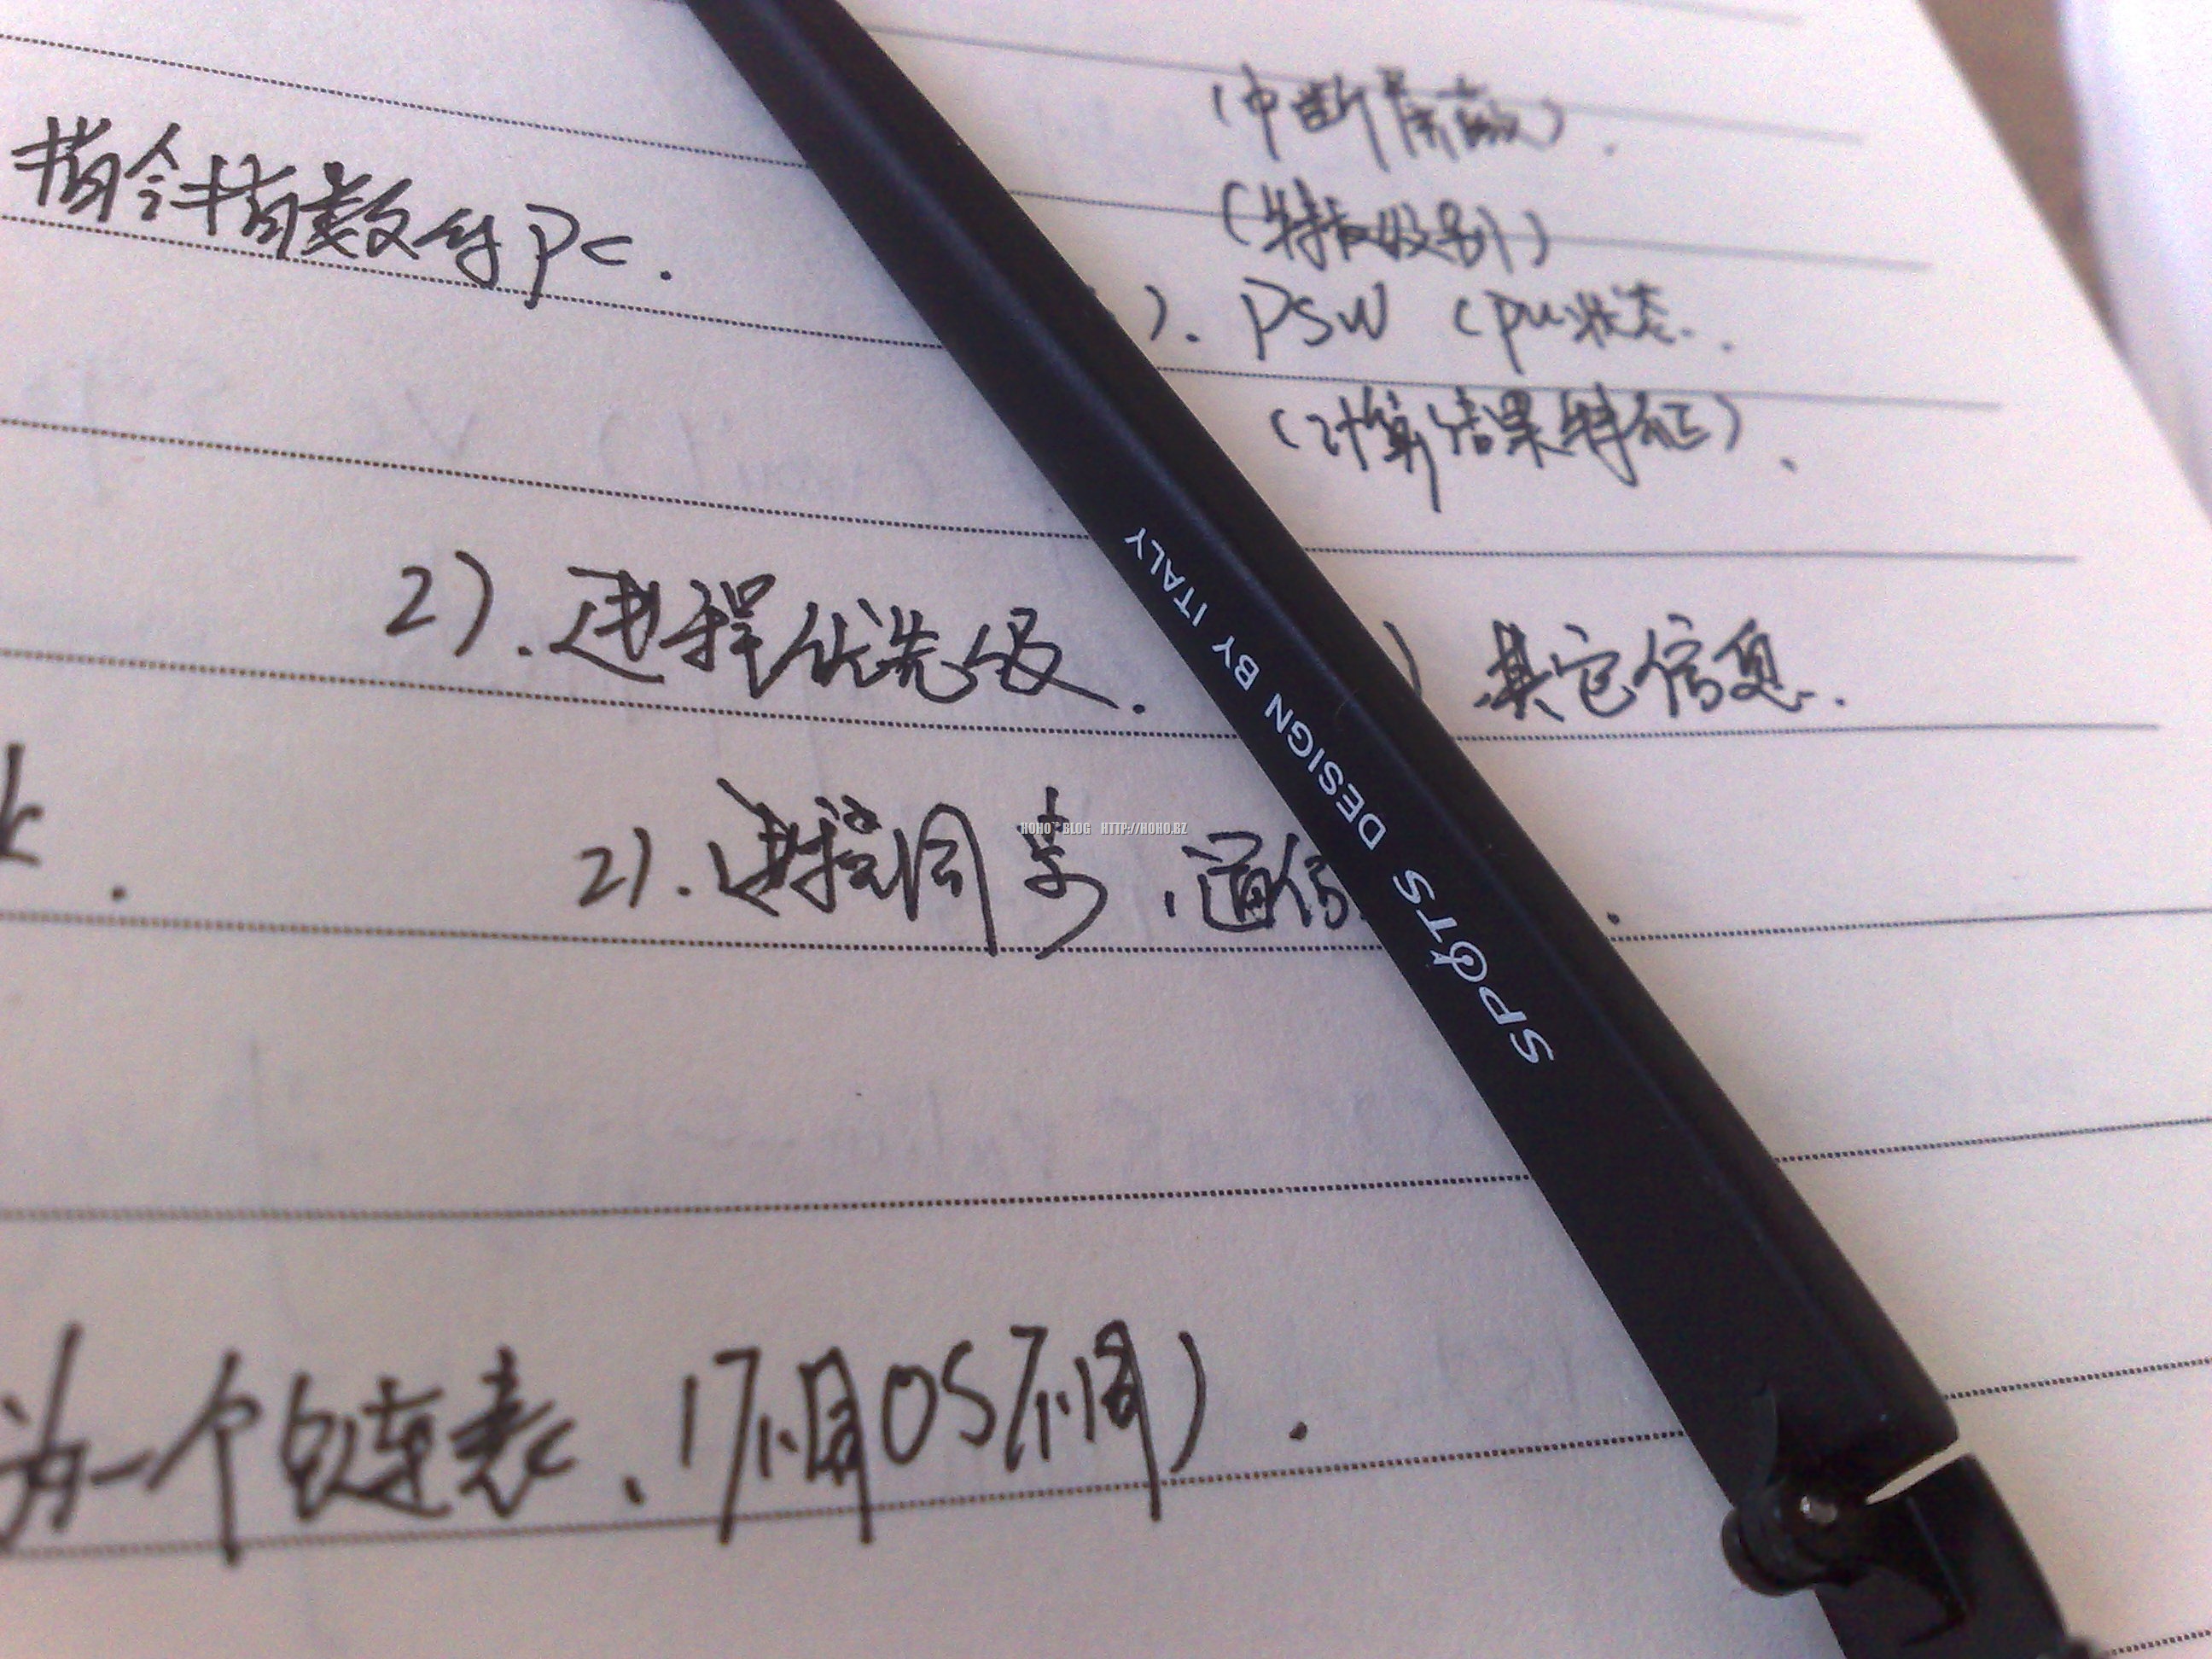 (中断屏蔽).
(特权级别)
指令指数的PC.
). PSW CPU状态.
(计算结果特征).
2).进程优先级.
) 其它信息.
2).进程同步,通信
为一个链表、1不同OS不同).
SPOTS DESIGN BY ITALY
HOHO BLOG HTTP://HOHO.BZ